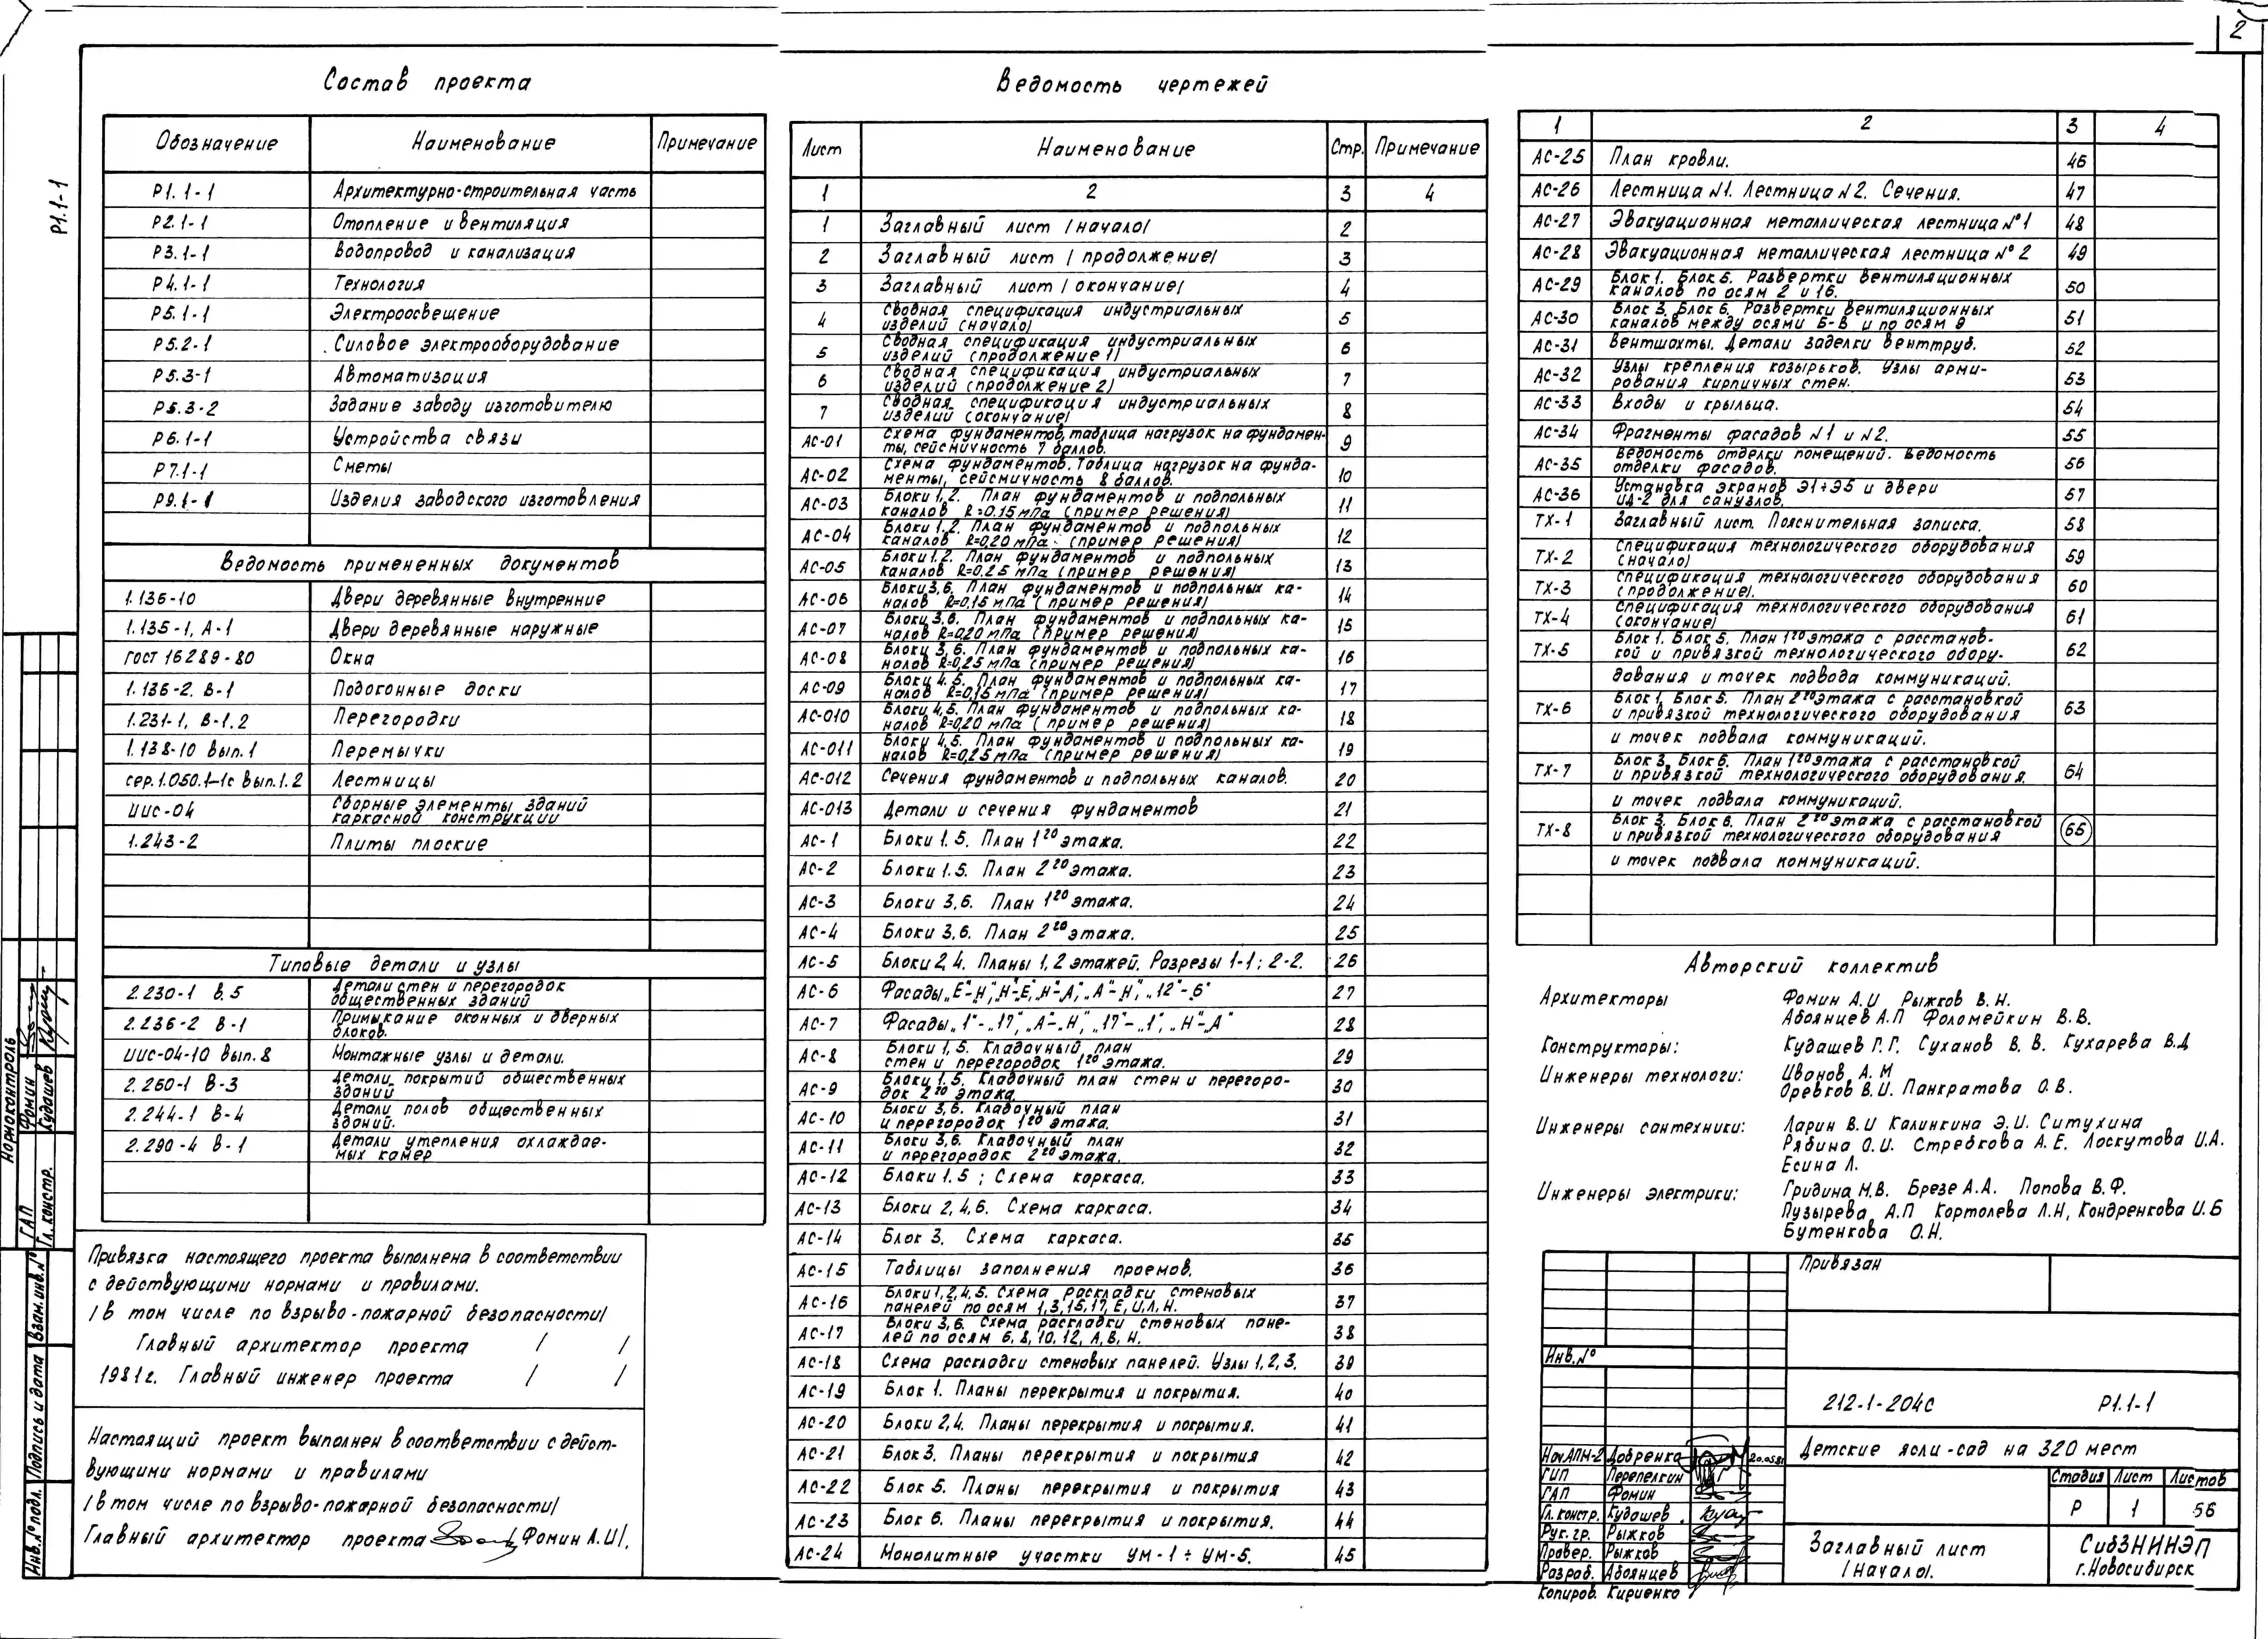 2
Р1.1-1
Состав проекта
Обозначение Наименование Примечание
Р1.1-1 Архитектурно-строительная часть
Р2.1-1 Отопление и вентиляция
Р3.1-1 Водопровод и канализация
Р4.1-1 Технология
Р5.1-1 Электроосвещение
Р5.2-1 Силовое электрооборудование
Р5.3-1 Автоматизация
Р5.3-2 Задание заводу изготовителю
Р6.1-1 Устройства связи
Р7.1-1 Сметы
Р9.1-1 Изделия заводского изготовления
Ведомость примененных документов
1.136-10 Двери деревянные внутренние
1.135-1, А-1 Двери деревянные наружные
ГОСТ 16289-80 Окна
1.136-2. В-1 Подоконные доски
1.231-1, В-1.2 Перегородки
1.138-10 вып.1 Перемычки
сер.1.050.1-1с вып.1.2 Лестницы
ИИС-04 Сборные элементы зданий
каркасной конструкции
1.243-2 Плиты плоские
Типовые детали и узлы
2.230-1 в.5 Детали стен и перегородок
общественных зданий
2.236-2 В-1 Примыкание оконных и дверных
блоков.
ИИС-04-10 вып.8 Монтажные узлы и детали.
2.260-1 В-3 Детали покрытий общественных
зданий
2.244-1 В-4 Детали полов общественных
зданий.
2.290-4 В-1 Детали утепления охлаждае-
мых камер
Привязка настоящего проекта выполнена в соответствии
с действующими нормами и правилами.
/в том числе по взрыво-пожарной безопасности/
Главный архитектор проекта / /
1981г. Главный инженер проекта / /
Настоящий проект выполнен в соответствии с дейст-
вующими нормами и правилами
/в том числе по взрыво-пожарной безопасности/
Главный архитектор проекта Фомин А.И/.
Нормоконтроль
ГАП Фомин
Гл.констр. Кудашев
Взам.инв.№
Подпись и дата
Инв.№подл.
Ведомость чертежей
Лист Наименование Стр. Примечание
1 2 3 4
1 Заглавный лист /начало/ 2
2 Заглавный лист /продолжение/ 3
3 Заглавный лист /окончание/ 4
4 Сводная спецификация индустриальных
изделий (начало) 5
5 Сводная спецификация индустриальных
изделий (продолжение 1) 6
6 Сводная спецификация индустриальных
изделий (продолжение 2) 7
7 Сводная спецификация индустриальных
изделий (окончание) 8
АС-01 Схема фундаментов, таблица нагрузок на фундамен-
ты, сейсмичность 7 баллов. 9
АС-02 Схема фундаментов. Таблица нагрузок на фунда-
менты, сейсмичность 8 баллов. 10
АС-03 Блоки 1,2. План фундаментов и подпольных
каналов R=0.15 мПа (пример решения) 11
АС-04 Блоки 1.2. План фундаментов и подпольных
каналов R=0,20 мПа (пример решения) 12
АС-05 Блоки 1.2. План фундаментов и подпольных
каналов R=0.25 мПа (пример решения) 13
АС-06 Блоки 3,6. План фундаментов и подпольных ка-
налов R=0,15 мПа (пример решения) 14
АС-07 Блоки 3.6. План фундаментов и подпольных ка-
налов R=0,20 мПа (пример решения) 15
АС-08 Блоки 3,6. План фундаментов и подпольных ка-
налов R=0,25 мПа (пример решения) 16
АС-09 Блоки 4.5. План фундаментов и подпольных ка-
налов R=0,15 мПа (пример решения) 17
АС-010 Блоки 4,5. План фундаментов и подпольных ка-
налов R=0,20 мПа (пример решения) 18
АС-011 Блоки 4,5. План фундаментов и подпольных ка-
налов R=0,25 мПа (пример решения) 19
АС-012 Сечения фундаментов и подпольных каналов. 20
АС-013 Детали и сечения фундаментов 21
АС-1 Блоки 1.5. План 1го этажа. 22
АС-2 Блоки 1.5. План 2го этажа. 23
АС-3 Блоки 3,6. План 1го этажа. 24
АС-4 Блоки 3,6. План 2го этажа. 25
АС-5 Блоки 2,4. Планы 1,2 этажей. Разрезы 1-1; 2-2. 26
АС-6 Фасады „Е"-„Н", „Н"-„Е", „Н"-„А", „А"-„Н", „12"-„6" 27
АС-7 Фасады „1"-„17", „А"-„Н", „17"-„1", „Н"-„А" 28
АС-8 Блоки 1,5. Кладочный план
стен и перегородок 1го этажа. 29
АС-9 Блоки 1.5. Кладочный план стен и перегоро-
док 2го этажа. 30
АС-10 Блоки 3,6. Кладочный план
и перегородок 1го этажа. 31
АС-11 Блоки 3,6. Кладочный план
и перегородок 2го этажа. 32
АС-12 Блаки 1.5; Схема каркаса. 33
АС-13 Блоки 2,4,6. Схема каркаса. 34
АС-14 Блок 3. Схема каркаса. 35
АС-15 Таблицы заполнения проемов. 36
АС-16 Блоки 1,2,4,5. Схема раскладки стеновых
панелей по осям 1,3,15,17, Е,И,Л,Н. 37
АС-17 Блоки 3,6. Схема раскладки стеновых пане-
лей по осям 6,8,10,12, А,В,Н. 38
АС-18 Схема раскладки стеновых панелей. Узлы 1,2,3. 39
АС-19 Блок 1. Планы перекрытия и покрытия. 40
АС-20 Блоки 2,4. Планы перекрытия и покрытия. 41
АС-21 Блок 3. Планы перекрытия и покрытия 42
АС-22 Блок 5. Планы перекрытия и покрытия 43
АС-23 Блок 6. Планы перекрытия и покрытия. 44
АС-24 Монолитные участки УМ-1÷УМ-5. 45
1 2 3 4
АС-25 План кровли. 46
АС-26 Лестница №1. Лестница №2. Сечения. 47
АС-27 Эвакуационная металлическая лестница №1 48
АС-28 Эвакуационная металлическая лестница №2 49
АС-29 Блок 1. Блок 5. Развертки вентиляционных
каналов по осям 2 и 16. 50
АС-30 Блок 3, Блок 6. Развертки вентиляционных
каналов между осями Б-В и по осям 9 51
АС-31 Вентшахты. Детали заделки венттруб. 52
АС-32 Узлы крепления козырьков. Узлы арми-
рования кирпичных стен. 53
АС-33 Входы и крыльца. 54
АС-34 Фрагменты фасадов №1 и №2. 55
АС-35 Ведомость отделки помещений. Ведомость
отделки фасадов. 56
АС-36 Установка экранов Э1÷Э5 и двери
ИД-2 для санузлов. 57
ТХ-1 Заглавный лист. Пояснительная записка. 58
ТХ-2 Спецификация технологического оборудования
(начало) 59
ТХ-3 Спецификация технологического оборудования
(продолжение). 60
ТХ-4 Спецификация технологического оборудования
(окончание) 61
ТХ-5 Блок 1. Блок 5. План 1го этажа с расстанов-
кой и привязкой технологического обору- 62
дования и точек подвода коммуникаций.
ТХ-6 Блок 1, Блок 5. План 2го этажа с расстановкой
и привязкой технологического оборудования 63
и точек подвала коммуникаций.
ТХ-7 Блок 3, Блок 6. План 1го этажа с расстановкой
и привязкой технологического оборудования. 64
и точек подвала коммуникаций.
ТХ-8 Блок 3. Блок 6. План 2го этажа с расстановкой
и привязкой технологического оборудования 65
и точек подвала коммуникаций.
Авторский коллектив
Архитекторы Фомин А.И Рыжков В.Н.
Абоянцев А.П Фоломейкин В.В.
Конструкторы: Кудашев Г.Г. Суханов В.В. Кухарева В.Д
Инженеры технологи: Иванов А.М
Оревков В.И. Панкратова О.В.
Инженеры сантехники: Ларин В.И Калинкина Э.И. Ситухина
Рябина О.И. Стребкова А.Е. Лоскутова И.А.
Есина Л.
Инженеры электрики: Гридина М.В. Брезе А.А. Попова В.Ф.
Пузырева А.П Кортолева Л.Н, Кондренкова И.Б
Бутенкова О.Н.
Привязан
Инв.№
212-1-204с Р1.1-1
Детские ясли-сад на 320 мест
Стадия Лист Листов
Р 1 56
Заглавный лист
/начало/.
СибЗНИИЭП
г.Новосибирск
Нач.АПМ-2 Добренко 20.05.81
ГИП Перепелкин
ГАП Фомин
Гл.констр. Кудашев
Рук.гр. Рыжков
Провер. Рыжков
Разраб. Абоянцев
Копиров. Кириенко